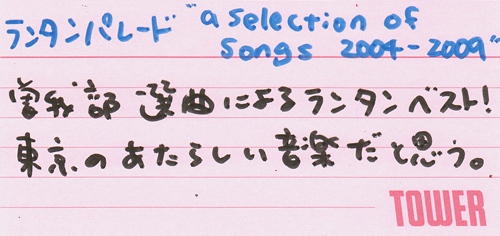 ランタンパレード "a selection of
songs 2004-2009"
曽我部選曲によるランタンベスト!
東京のあたらしい音楽だと思う。
TOWER